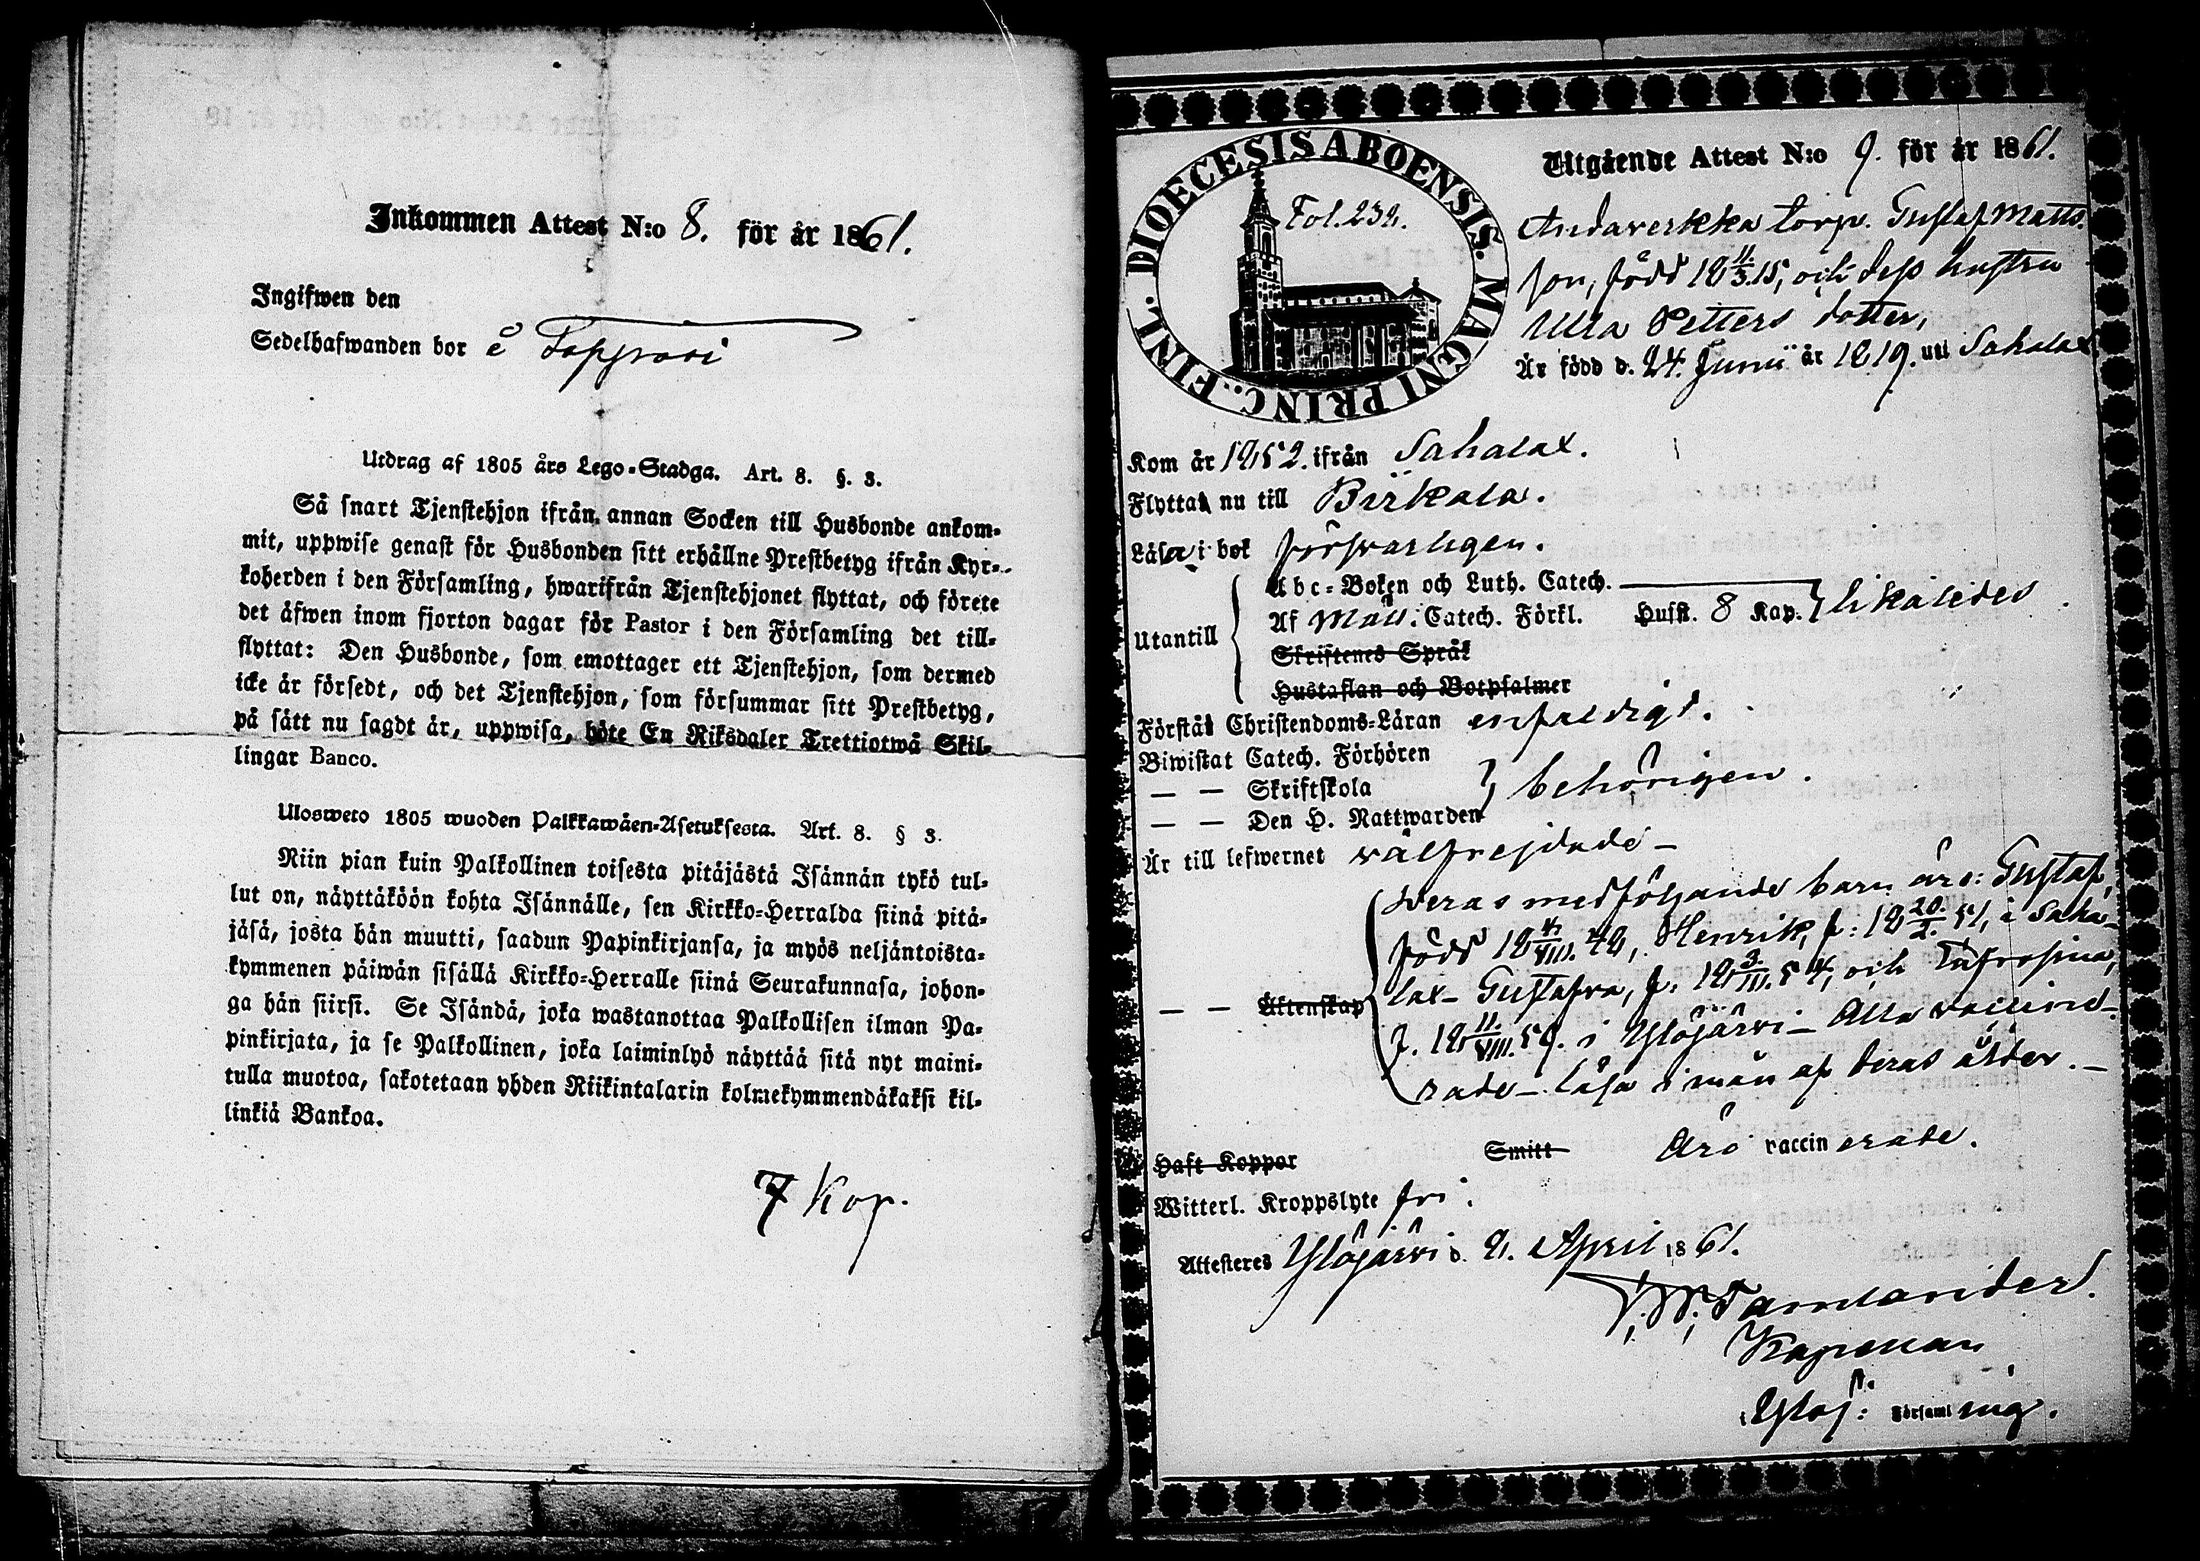 Inkommen Attest N:o 8. för år 1861.
Ingifwen den
Sedelhafwanden bor å
Utdrag af 1805 års Lego-Stadga. Art. 8. §. 3.
Så snart Tjenstehjon ifrån annan Socken till Husbonde ankom-
mit, uppwise genast för Husbonden sitt erhållne Prestbetyg ifrån Kyr-
koherden i den Församling, hwarifrån Tjenstehjonet flyttat, och förete
det äfwen inom fjorton dagar för Pastor i den Församling det till-
flyttat: Den Husbonde, som emottager ett Tjenstehjon, som dermed
icke är försedt, och det Tjenstehjon, som försummar sitt Prestbetyg,
på sätt nu sagdt är, uppwisa, böte En Riksdaler Trettiotwå Skil-
lingar Banco.
Ulosweto 1805 wuoden Palkkawäen-Asetuksesta. Art. 8. § 3.
Niin pian kuin Palkollinen toisesta pitäjästä Isännän tykö tul-
lut on, näyttäköön kohta Isännälle, sen Kirkko-Herralda siinä pitä-
jäsä, josta hän muutti, saadun Papinkirjansa, ja myös neljäntoista-
kymmenen päiwän sisällä Kirkko-Herralle siinä Seurakunnasa, johon-
ga hän siirsi. Se Isändä, joka wastanottaa Palkollisen ilman Pa-
pinkirjata, ja se Palkollinen, joka laiminlyö näyttää sitä nyt maini-
tulla muotoa, sakotetaan yhden Riikintalarin kolmekymmendäkaksi kil-
linkiä Bankoa.
7 Kop.
FINL. DIOECESIS ABOENSIS. MAGNI PRINC.
Fol. 232.
Utgående Attest N:o 9. för år 1861.
Andaverkka torp. Gustaf Matts-
son, född 18 11/3. 15, och dess hustru
Ulla Petters dotter,
Är född d. 24. Junii år 1819. uti Sahalax
Kom år 1852. ifrån Sahalax.
Flytta nu till Birkala.
Läsa i bok försvarligen.
Utantill
Abc-Boken och Luth. Catech.
Af Catech. Förkl. Husst. 8 Kap. likaledes
Skriftenes Språk
Hustaflan och Botpsalmer
Förstå Christendoms-Läran enfaldigt.
Biwistat Catech. Förhören
— — Skriftskola behörigen.
— — Den H. Nattwarden
Är till lefwernet välfrejdade —
Deras medföljande barn äro: Gustaf,
född 18 VIII. 48, Henrik, f: 18 20/2. 51, i Saha-
lax — Gustafva, f. 18 3/III. 54, och Eufrosina,
— — Äktenskap
f. 18 11/VIII. 59. i Ylöjärvi — Alla vaccine-
rade — läsa i mån af deras ålder. —
Haft Koppor Smitt Äro vaccinerade.
Witterl. Kroppslyte fri.
Attesteres Ylöjärvi d. April 1861.
Tamlander.
Kapellan
i Ylöj: Församling.